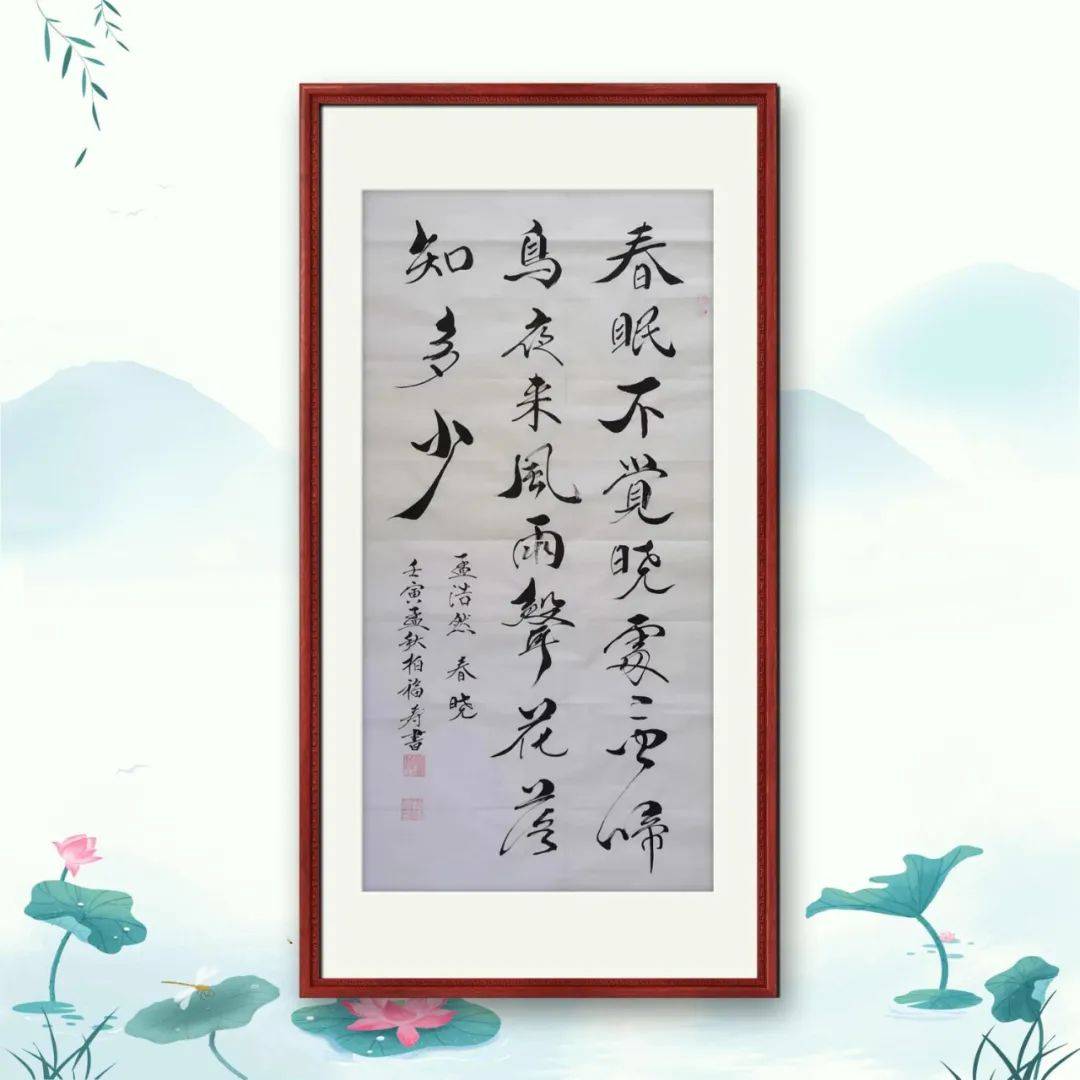 春眠不覚晓處處啼
鳥夜来風雨聲花落
知多少
孟浩然 春晓
壬寅孟秋柏福寿書